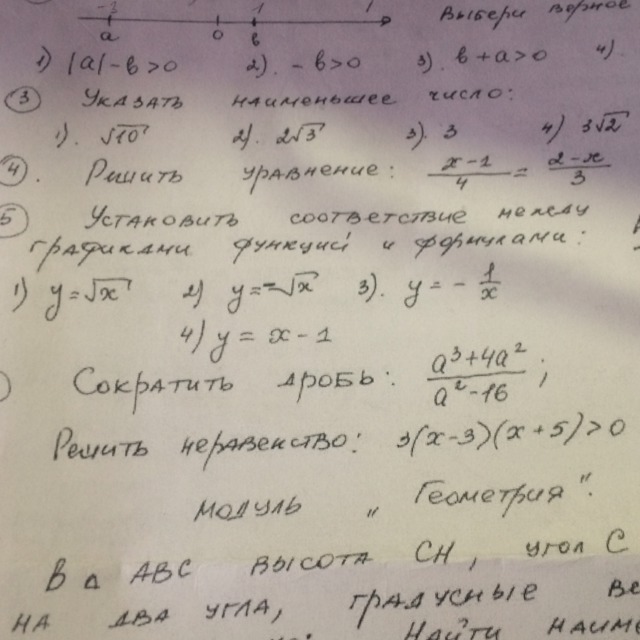 -1 1
a 0 в Выбери верное
1) |a|-в>0 2). -в>0 3). в+a>0 4).
③ Указать наименьшее число:
1). √10 2). 2√3 3) 3 4) 3√2
④. Ришить уравнение: (x-1)/4 = (2-x)/3
5 Установить соответствие между
графиками функций и формулами:
1) y=√x 2) y=-√x 3). y = -1/x
4) y = x-1
) Сократить дробь: (a³+4a²)/(a²-16);
Решить неравенство: 3(x-3)(x+5)>0
модуль „Геометрия".
В △ ABC высота CH, угол C
на два угла, градусные
Найти